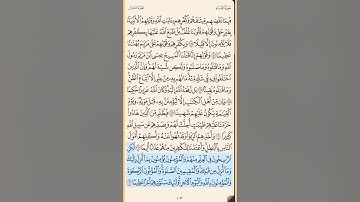 فَبِمَا نَقْضِهِم مِّيثَٰقَهُمْ وَكُفْرِهِم بِـَٔايَٰتِ ٱللَّهِ وَقَتْلِهِمُ ٱلْأَنۢبِيَآءَ
بِغَيْرِ حَقٍّ وَقَوْلِهِمْ قُلُوبُنَا غُلْفٌۢ بَلْ طَبَعَ ٱللَّهُ عَلَيْهَا بِكُفْرِهِمْ
فَلَا يُؤْمِنُونَ إِلَّا قَلِيلًا ١٥٥ وَبِكُفْرِهِمْ وَقَوْلِهِمْ عَلَىٰ مَرْيَمَ بُهْتَٰنًا
عَظِيمًا ١٥٦ وَقَوْلِهِمْ إِنَّا قَتَلْنَا ٱلْمَسِيحَ عِيسَى ٱبْنَ مَرْيَمَ رَسُولَ
ٱللَّهِ وَمَا قَتَلُوهُ وَمَا صَلَبُوهُ وَلَٰكِن شُبِّهَ لَهُمْ وَإِنَّ ٱلَّذِينَ
ٱخْتَلَفُوا۟ فِيهِ لَفِى شَكٍّ مِّنْهُ مَا لَهُم بِهِۦ مِنْ عِلْمٍ إِلَّا ٱتِّبَاعَ ٱلظَّنِّ
وَمَا قَتَلُوهُ يَقِينًۢا ١٥٧ بَل رَّفَعَهُ ٱللَّهُ إِلَيْهِ وَكَانَ ٱللَّهُ عَزِيزًا حَكِيمًا
١٥٨ وَإِن مِّنْ أَهْلِ ٱلْكِتَٰبِ إِلَّا لَيُؤْمِنَنَّ بِهِۦ قَبْلَ مَوْتِهِۦ
وَيَوْمَ ٱلْقِيَٰمَةِ يَكُونُ عَلَيْهِمْ شَهِيدًا ١٥٩ فَبِظُلْمٍ مِّنَ ٱلَّذِينَ هَادُوا۟
حَرَّمْنَا عَلَيْهِمْ طَيِّبَٰتٍ أُحِلَّتْ لَهُمْ وَبِصَدِّهِمْ عَن سَبِيلِ ٱللَّهِ
كَثِيرًا ١٦٠ وَأَخْذِهِمُ ٱلرِّبَوٰا۟ وَقَدْ نُهُوا۟ عَنْهُ وَأَكْلِهِمْ أَمْوَٰلَ
ٱلنَّاسِ بِٱلْبَٰطِلِ وَأَعْتَدْنَا لِلْكَٰفِرِينَ مِنْهُمْ عَذَابًا أَلِيمًا ١٦١ لَّٰكِنِ
ٱلرَّٰسِخُونَ فِى ٱلْعِلْمِ مِنْهُمْ وَٱلْمُؤْمِنُونَ يُؤْمِنُونَ بِمَآ أُنزِلَ إِلَيْكَ
وَمَآ أُنزِلَ مِن قَبْلِكَ وَٱلْمُقِيمِينَ ٱلصَّلَوٰةَ وَٱلْمُؤْتُونَ ٱلزَّكَوٰةَ
وَٱلْمُؤْمِنُونَ بِٱللَّهِ وَٱلْيَوْمِ ٱلْـَٔاخِرِ أُو۟لَٰٓئِكَ سَنُؤْتِيهِمْ أَجْرًا عَظِيمًا ١٦٢
١٠٣